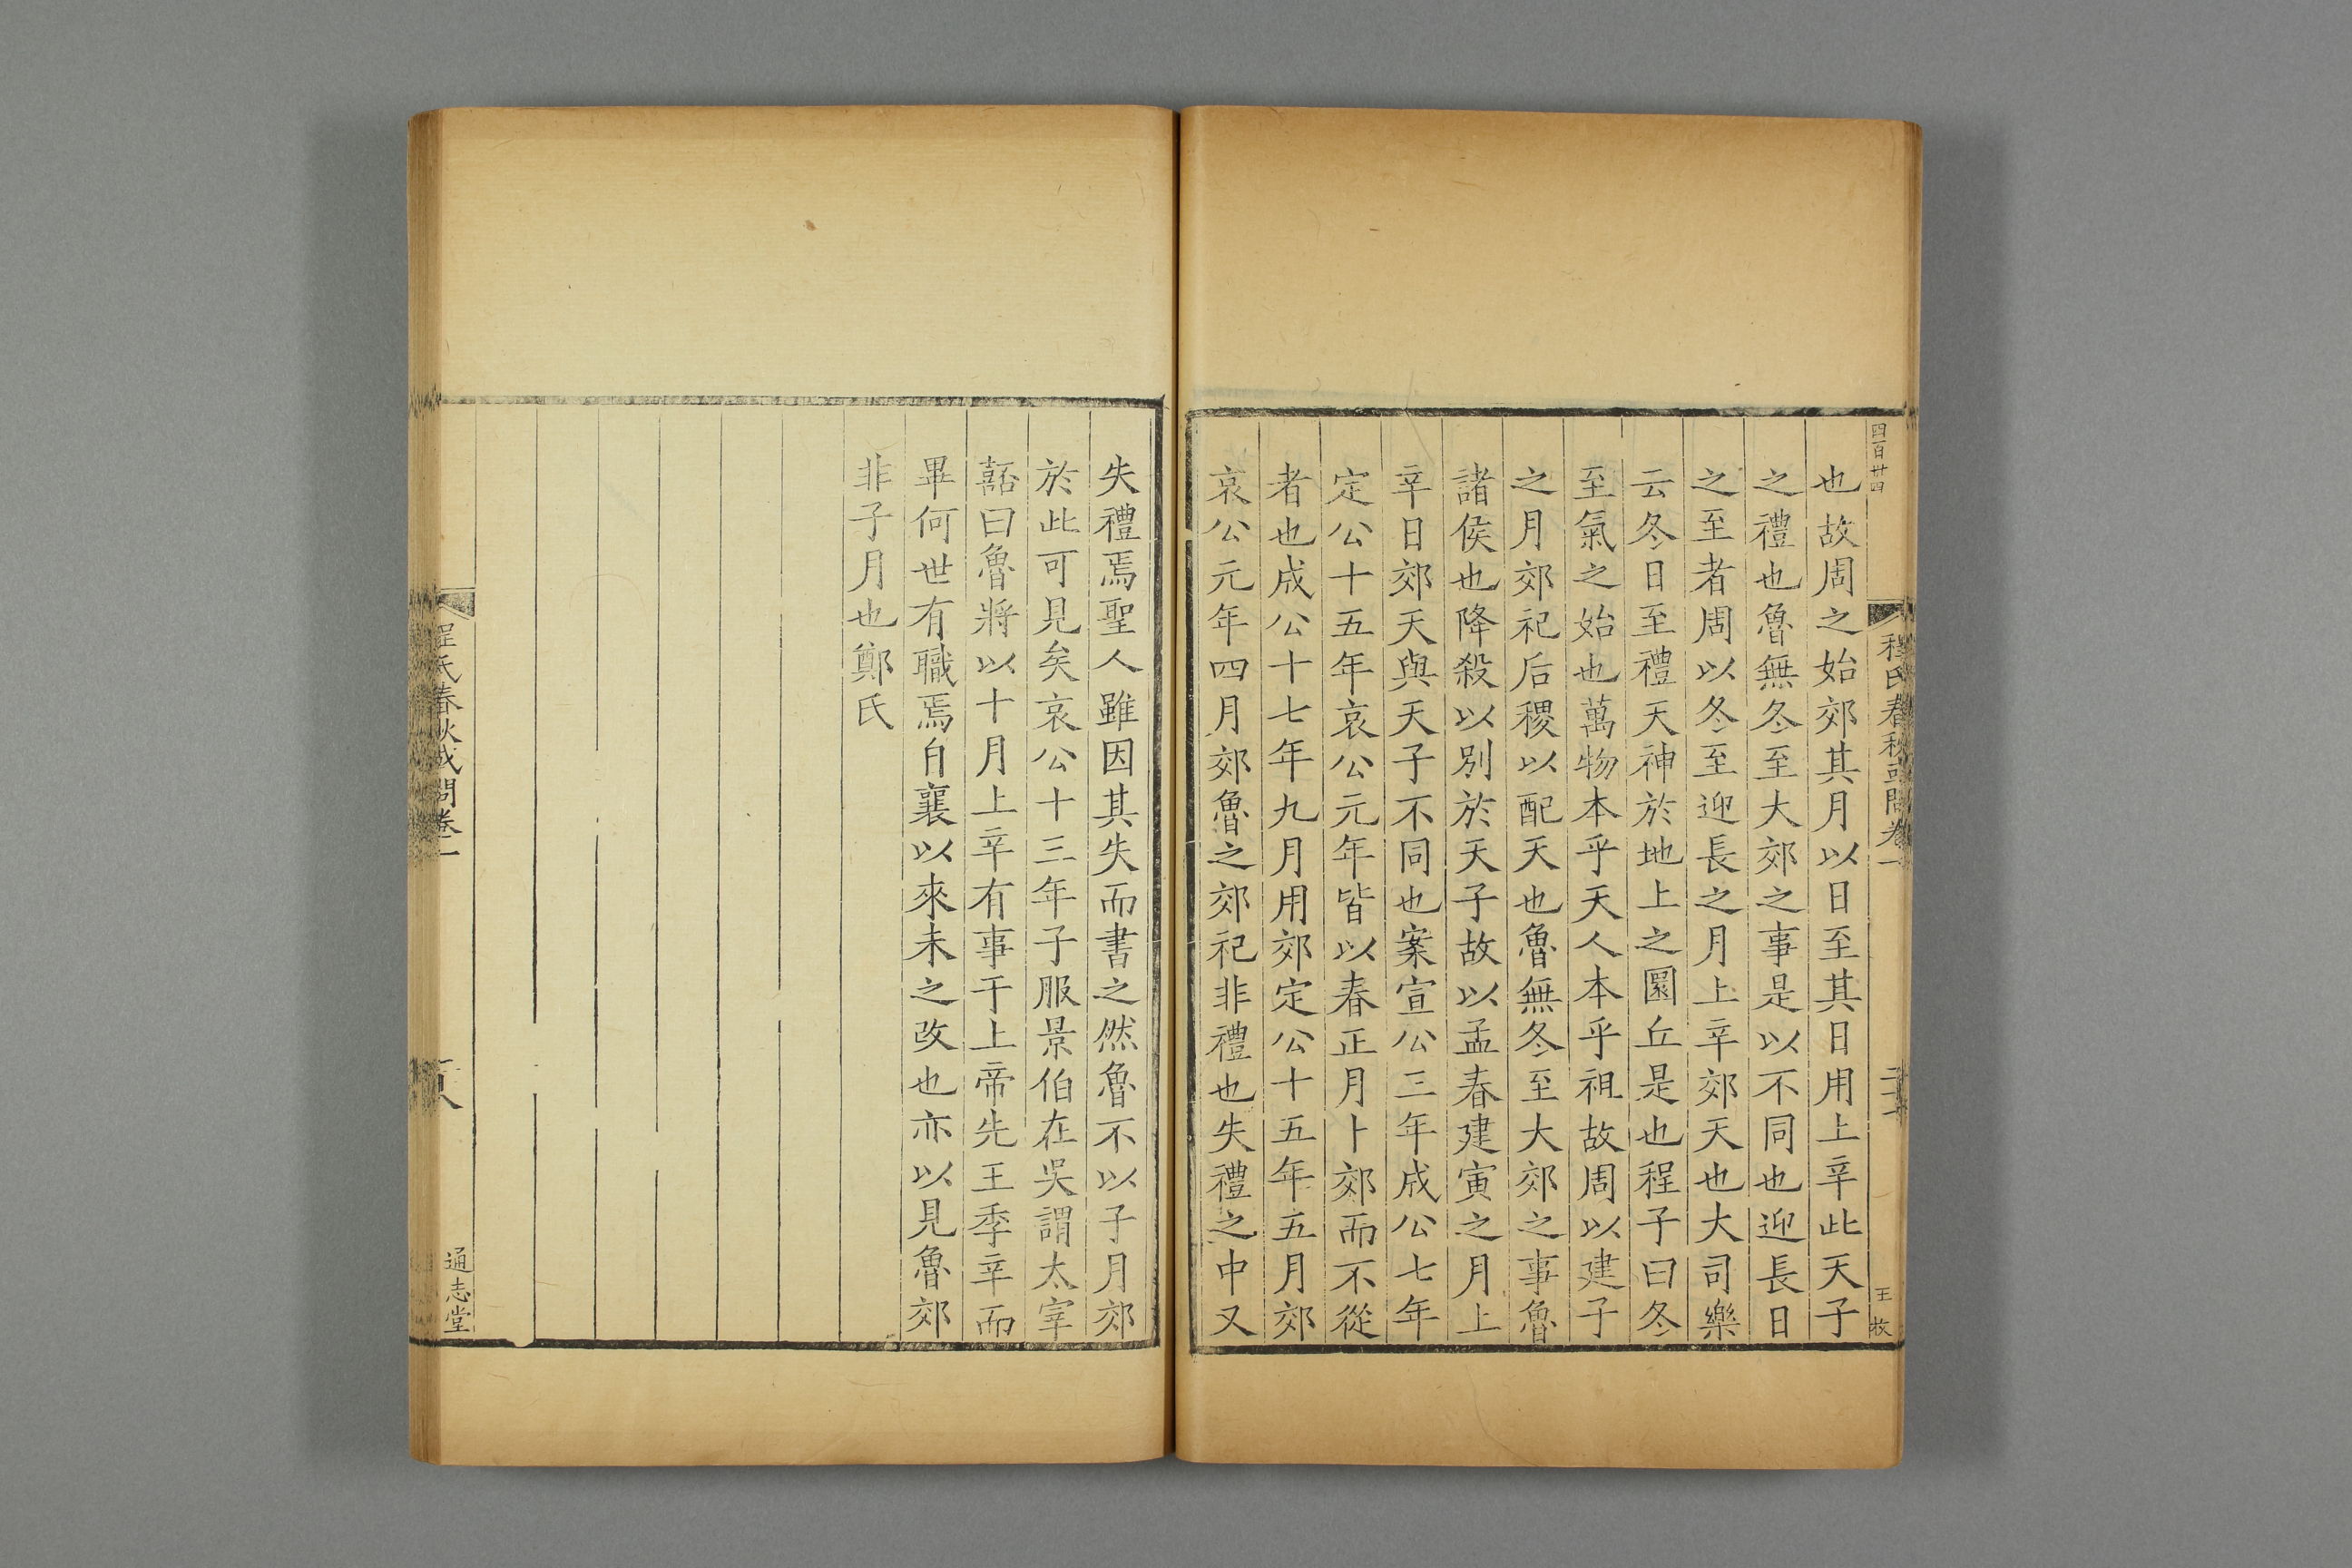 四百廿四
程氏春秋或問卷一
王 枚
也故周之始郊其月以日至其日用上辛此天子
之禮也魯無冬至大郊之事是以不同也迎長日
之至者周以冬至迎長之月上辛郊天也大司樂
云冬日至禮天神於地上之圜丘是也程子曰冬
至氣之始也萬物本乎天人本乎祖故周以建子
之月郊祀后稷以配天也魯無冬至大郊之事魯
諸侯也降殺以別於天子故以孟春建寅之月上
辛日郊天與天子不同也案宣公三年成公七年
定公十五年哀公元年皆以春正月卜郊而不從
者也成公十七年九月用郊定公十五年五月郊
哀公元年四月郊魯之郊祀非禮也失禮之中又
失禮焉聖人雖因其失而書之然魯不以子月郊
於此可見矣哀公十三年子服景伯在吳謂太宰
嚭曰魯將以十月上辛有事于上帝先王季辛而
畢何世有職焉自襄以來未之改也亦以見魯郊
非子月也鄭氏
程氏春秋或問卷一
通志堂